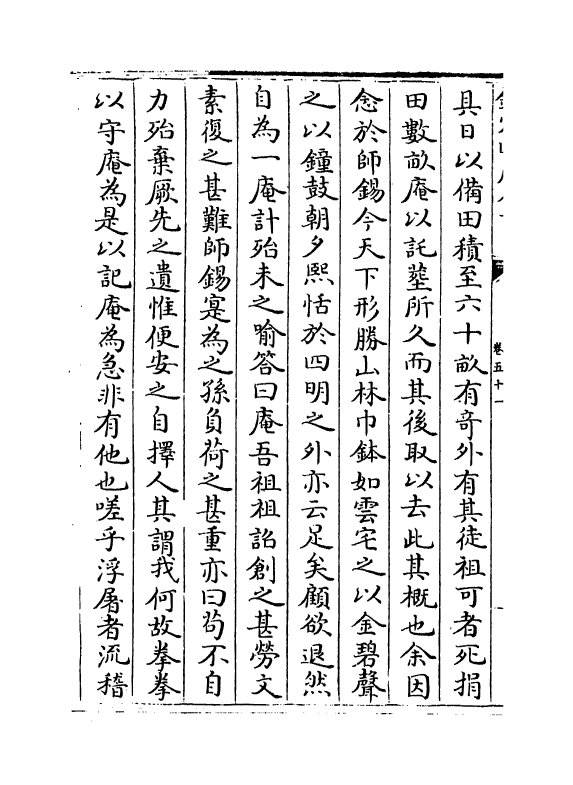 卷五十一
具日以備田積至六十畝有奇外有其徒祖可者死捐
田數畝庵以託塟所久而其後取以去此其概也余因
念於師錫今天下形勝山林巾鉢如雲宅之以金碧聲
之以鐘鼓朝夕熙恬於四明之外亦云足矣顧欲退然
自為一庵計殆未之喻答曰庵吾祖祖詔創之甚勞文
素復之甚難師錫寔為之孫負荷之甚重亦曰茍不自
力殆棄厥先之遺惟便安之自擇人其謂我何故拳拳
以守庵為是以記庵為急非有他也嗟乎浮屠者流稽